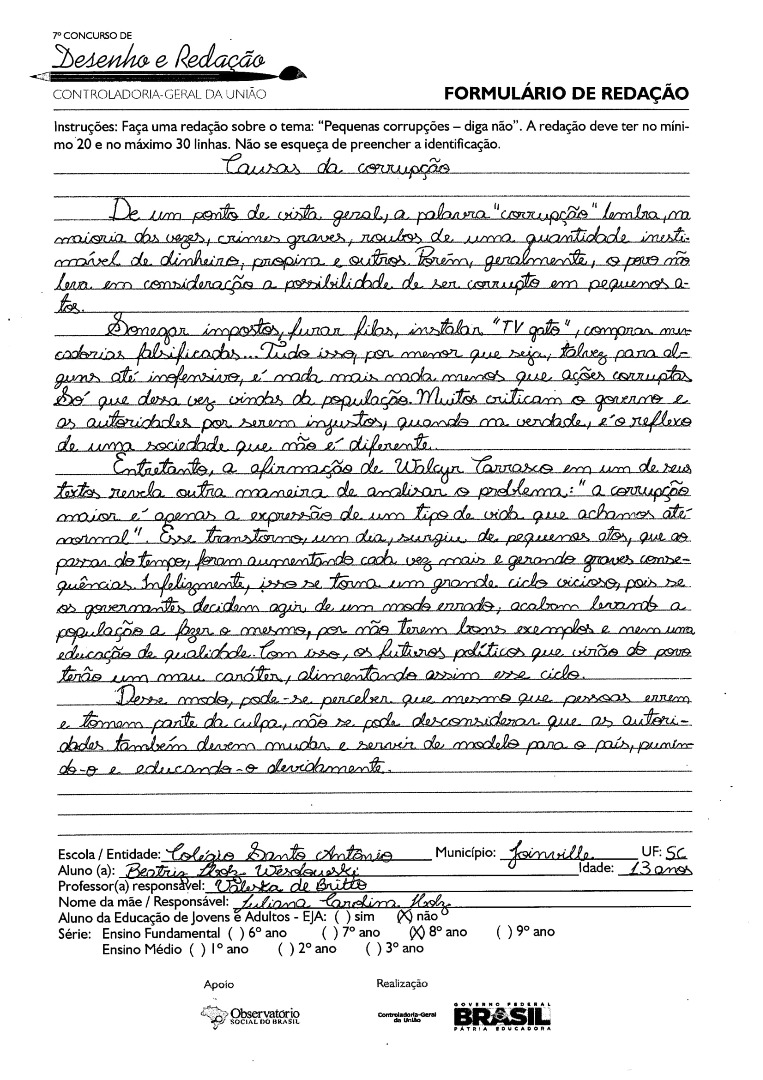 7º CONCURSO DE
Desenho e Redação
CONTROLADORIA-GERAL DA UNIÃO
FORMULÁRIO DE REDAÇÃO
Instruções: Faça uma redação sobre o tema: "Pequenas corrupções – diga não". A redação deve ter no míni-
mo 20 e no máximo 30 linhas. Não se esqueça de preencher a identificação.
Causas da corrupção
De um ponto de vista geral, a palavra "corrupção" lembra, na
maioria das vezes, crimes graves, roubos de uma quantidade inesti-
mável de dinheiro, propina e outros. Porém, geralmente, o povo não
leva em consideração a possibilidade de ser corrupto em pequenos a-
tos.
Sonegar impostos, furar filas, instalar "TV gato", comprar mer-
cadorias falsificadas... Tudo isso, por menor que seja, talvez para al-
guns até inofensivo, é nada mais nada menos que ações corruptas
Só que dessa vez vindas da população. Muitos criticam o governo e
as autoridades por serem injustos, quando na verdade, é o reflexo
de uma sociedade que não é diferente.
Entretanto, a afirmação de Walcyr Carrasco em um de seus
textos revela outra maneira de analisar o problema: "a corrupção
maior é apenas a expressão de um tipo de vida que achamos até
normal". Esse transtorno, um dia, surgiu de pequenos atos, que ao
passar do tempo, foram aumentando cada vez mais e gerando graves conse-
quências. Infelizmente, isso se torna um grande ciclo vicioso, pois se
os governantes decidem agir de um modo errado, acabam levando a
população a fazer o mesmo, por não terem bons exemplos e nem uma
educação de qualidade. Com isso, os futuros políticos que virão do povo
terão um mau caráter, alimentando assim esse ciclo.
Desse modo, pode-se perceber que mesmo que pessoas errem
e tomem parte da culpa, não se pode desconsiderar que as autori-
dades também devem mudar e servir de modelo para o país, punin-
do-o e educando-o devidamente.
Escola / Entidade: Colégio Santo Antônio Município: Joinville UF: SC
Aluno (a): Beatriz Idade: 13 anos
Professor(a) responsável: Valeska de Britto
Nome da mãe / Responsável: Juliana Carolina
Aluno da Educação de Jovens e Adultos - EJA: ( ) sim (X) não
Série: Ensino Fundamental ( ) 6º ano ( ) 7º ano (X) 8º ano ( ) 9º ano
Ensino Médio ( ) 1º ano ( ) 2º ano ( ) 3º ano
Apoio Realização
Observatório
SOCIAL DO BRASIL
Controladoria-Geral
da União
GOVERNO FEDERAL
BRASIL
PÁTRIA EDUCADORA